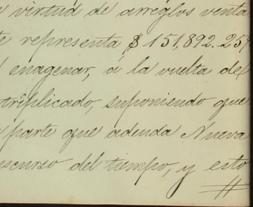 virtud de arreglos venta
representa $151,892.25
enagenar, á la vuelta de
triplicado, suponiendo que
parte que adeuda Nueva
scurso del tiempo, y esto